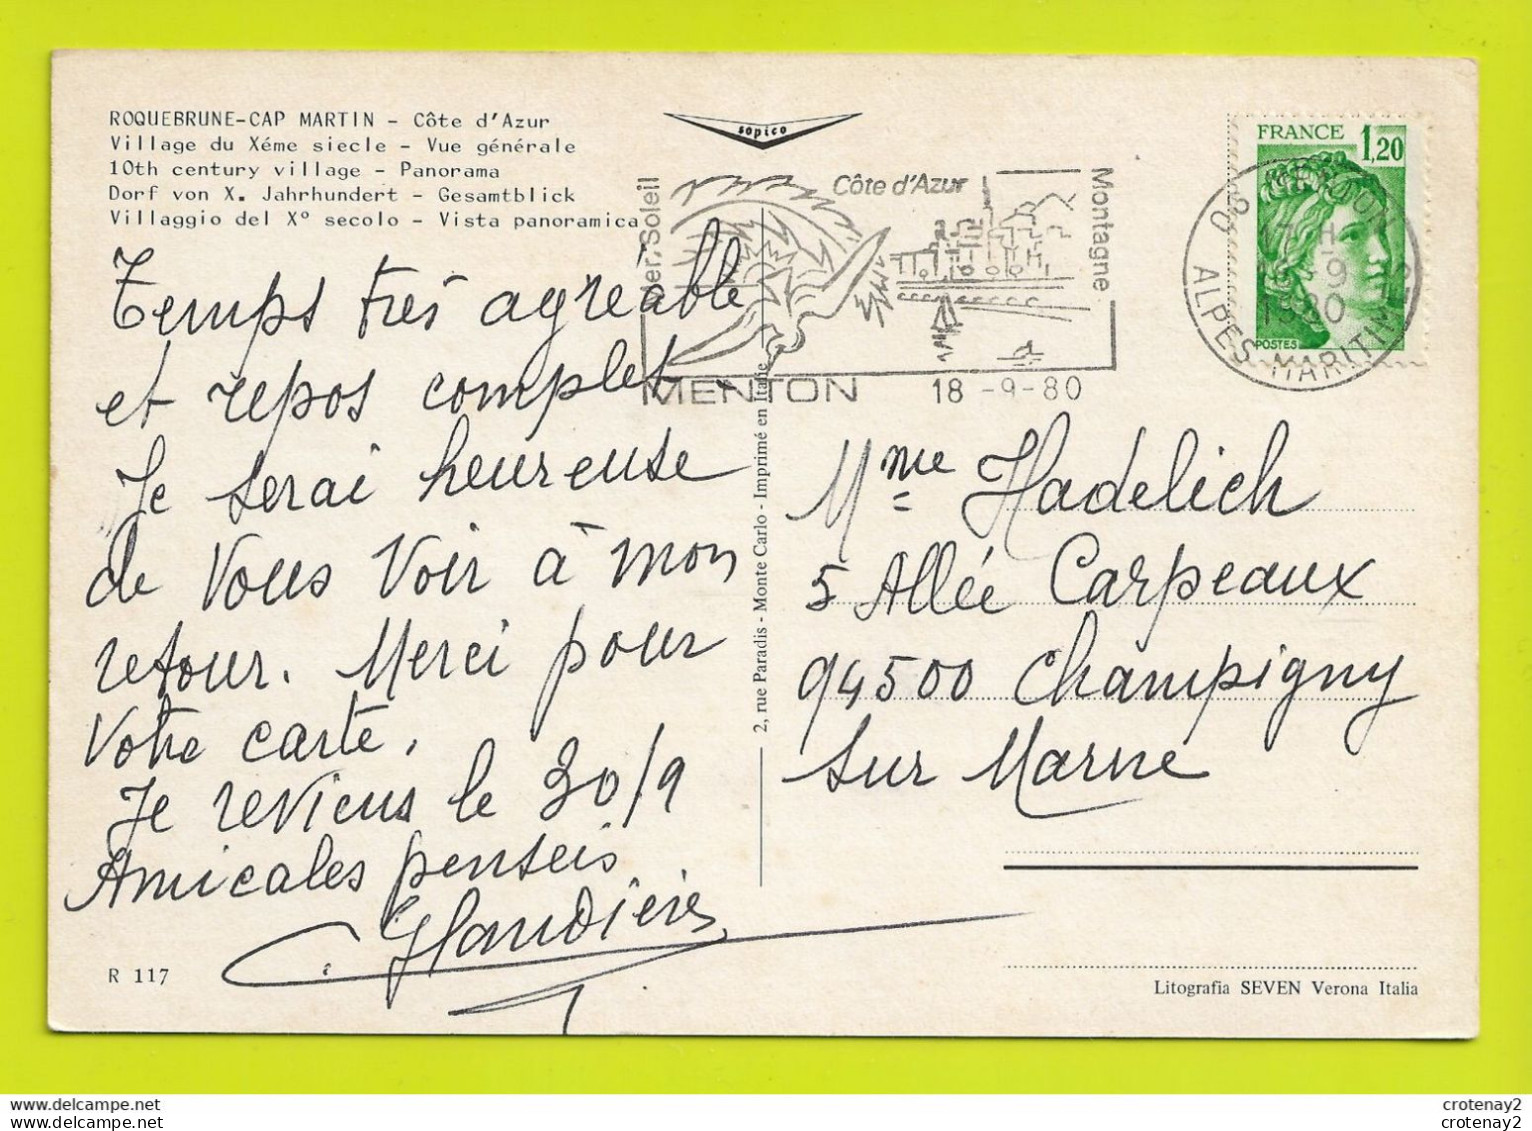 ROQUEBRUNE-CAP MARTIN - Côte d'Azur
Village du Xéme siecle - Vue générale
10th century village - Panorama
Dorf von X. Jahrhundert - Gesamtblick
Villaggio del X° secolo - Vista panoramica
sopico
Mer, Soleil
Côte d'Azur
Montagne
MENTON
18 -9-80
FRANCE 1,20
POSTES
06 MENTON
17 H
1980
ALPES-MARITIMES
Temps très agréable
et repos complet.
Je serai heureuse
de Vous Voir à mon
retour. Merci pour
Votre carte.
Je reviens le 30/9
Amicales penseis
Glandières
2, rue Paradis - Monte Carlo - Imprimé en Italie
Mme Hadelich
5 Allée Carpeaux
94500 Champigny
Sur Marne
R 117
Litografia SEVEN Verona Italia
crotenay2
crotenay2
crotenay2
crotenay2